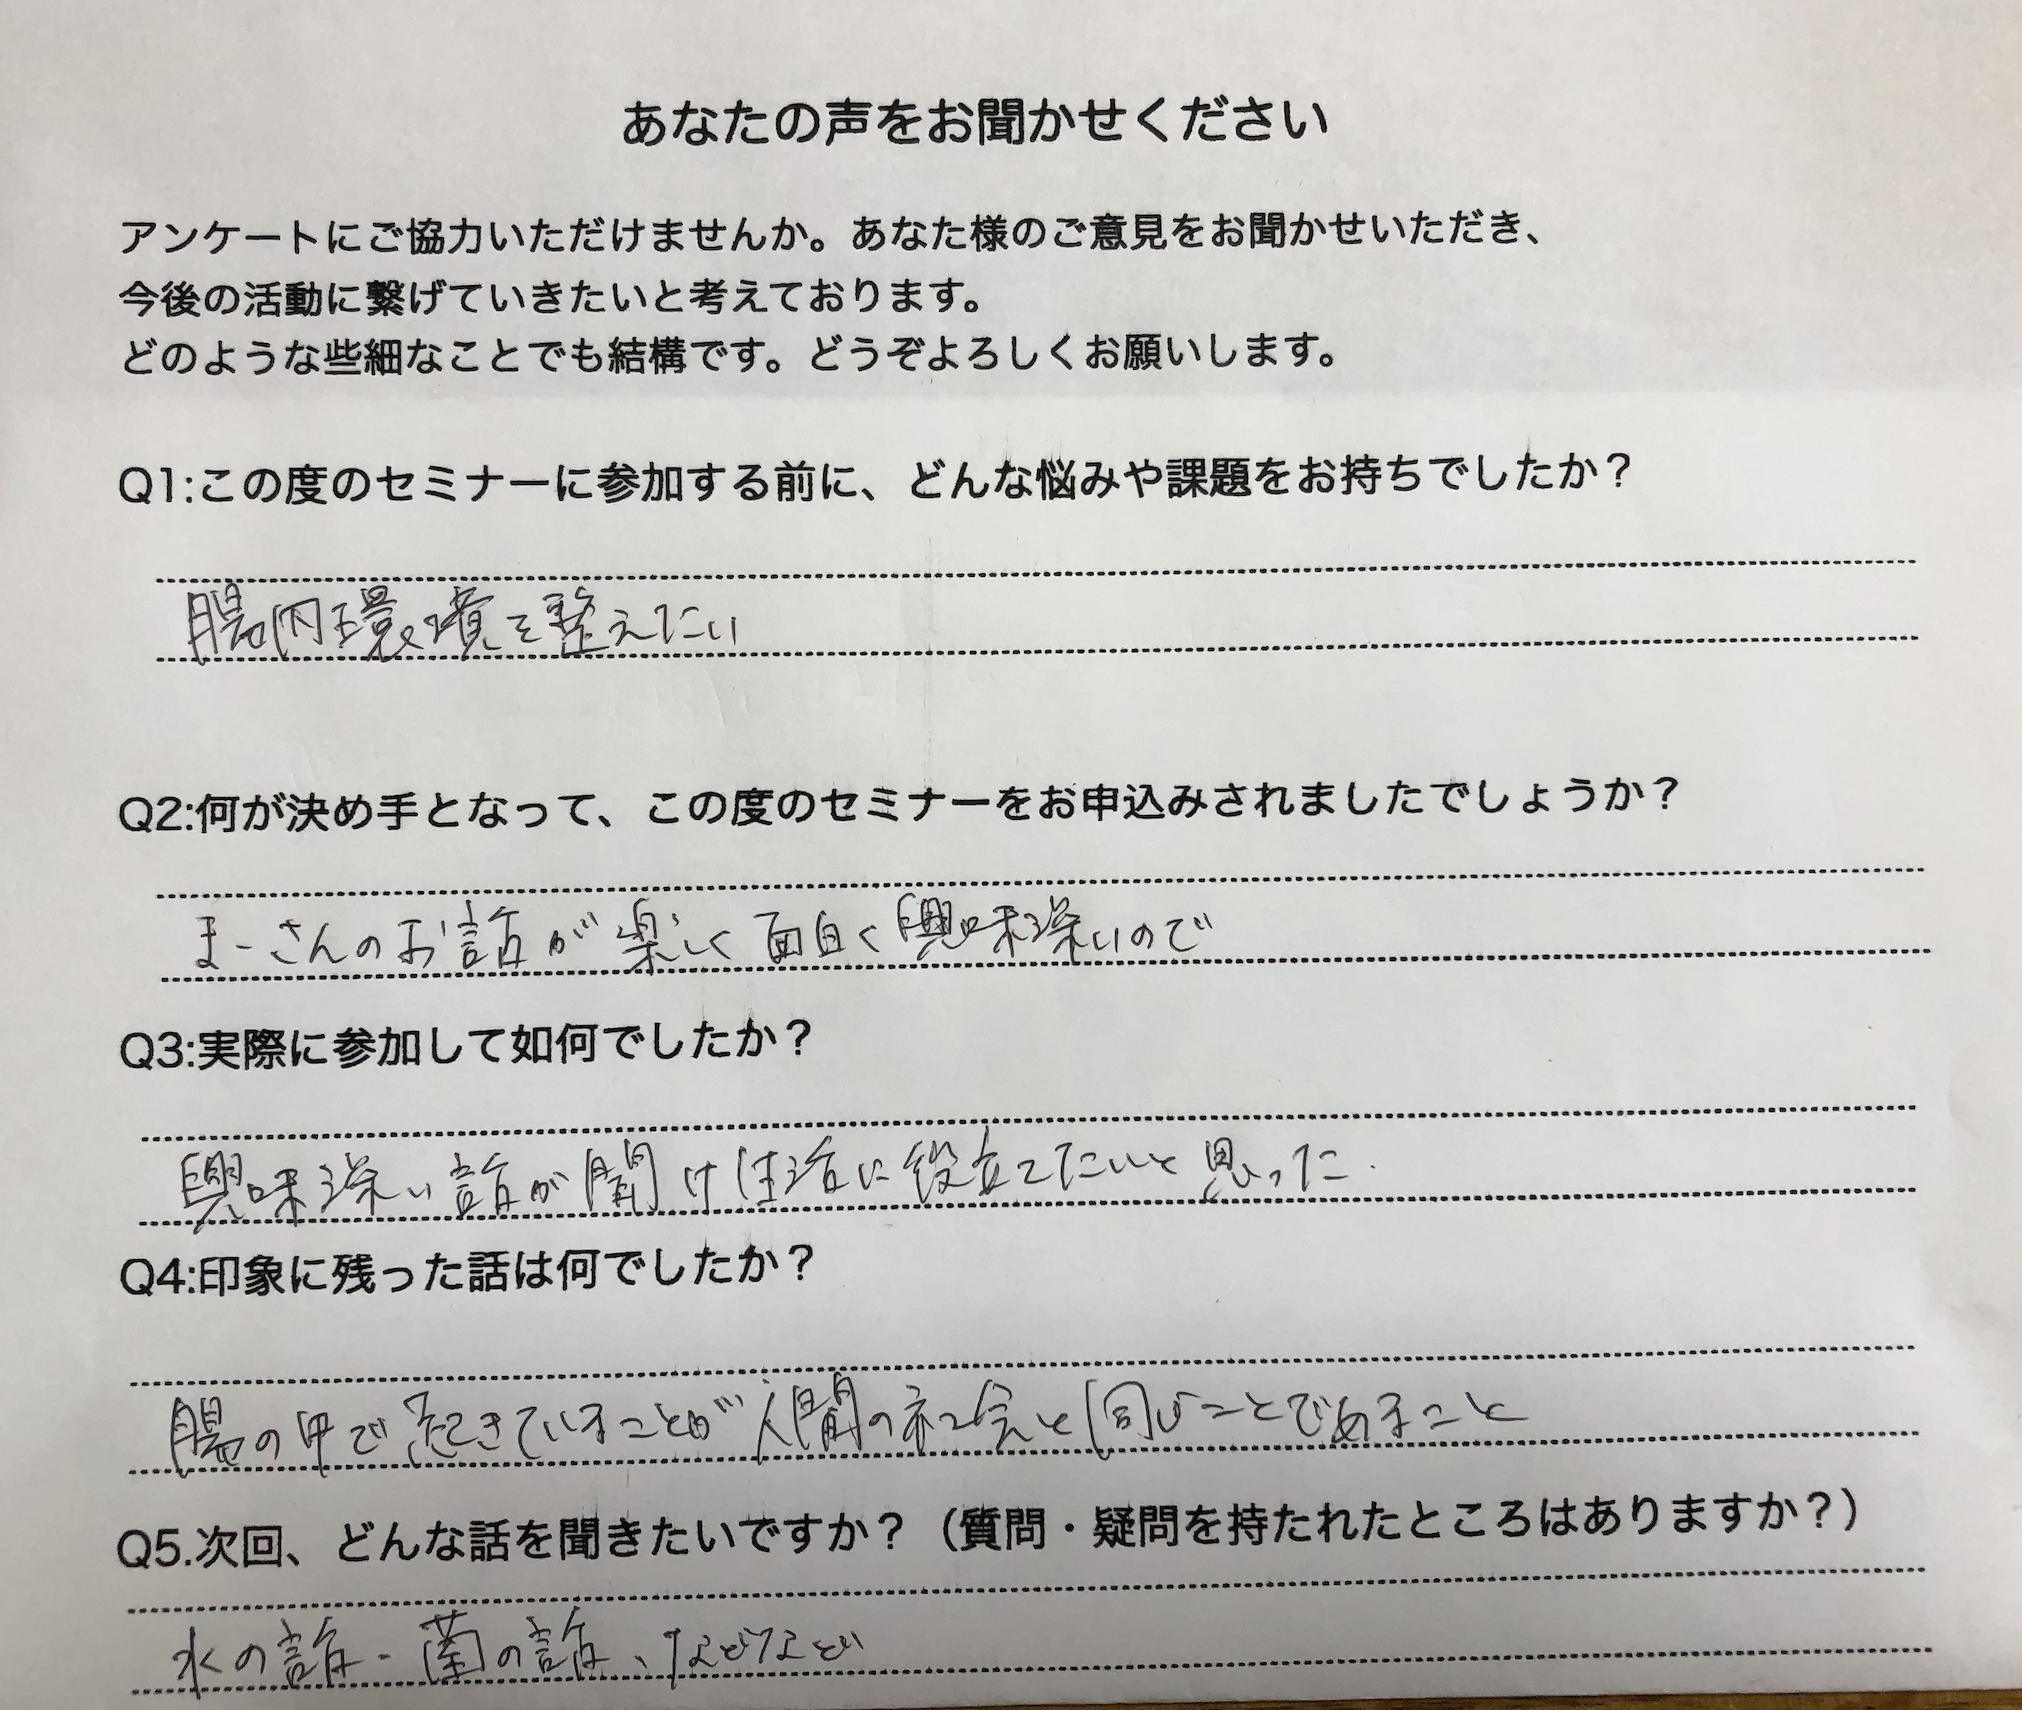 あなたの声をお聞かせください
アンケートにご協力いただけませんか。あなた様のご意見をお聞かせいただき、
今後の活動に繋げていきたいと考えております。
どのような些細なことでも結構です。どうぞよろしくお願いします。
Q1:この度のセミナーに参加する前に、どんな悩みや課題をお持ちでしたか？
腸内環境を整えたい
Q2:何が決め手となって、この度のセミナーをお申込みされましたでしょうか？
まーさんのお話が楽しく面白く興味深いので
Q3:実際に参加して如何でしたか？
興味深い話が聞け生活に役立てたいと思った.
Q4:印象に残った話は何でしたか？
腸の中で起きていることが人間の社会と同じことであること
Q5.次回、どんな話を聞きたいですか？（質問・疑問を持たれたところはありますか？）
水の話・菌の話、などなど